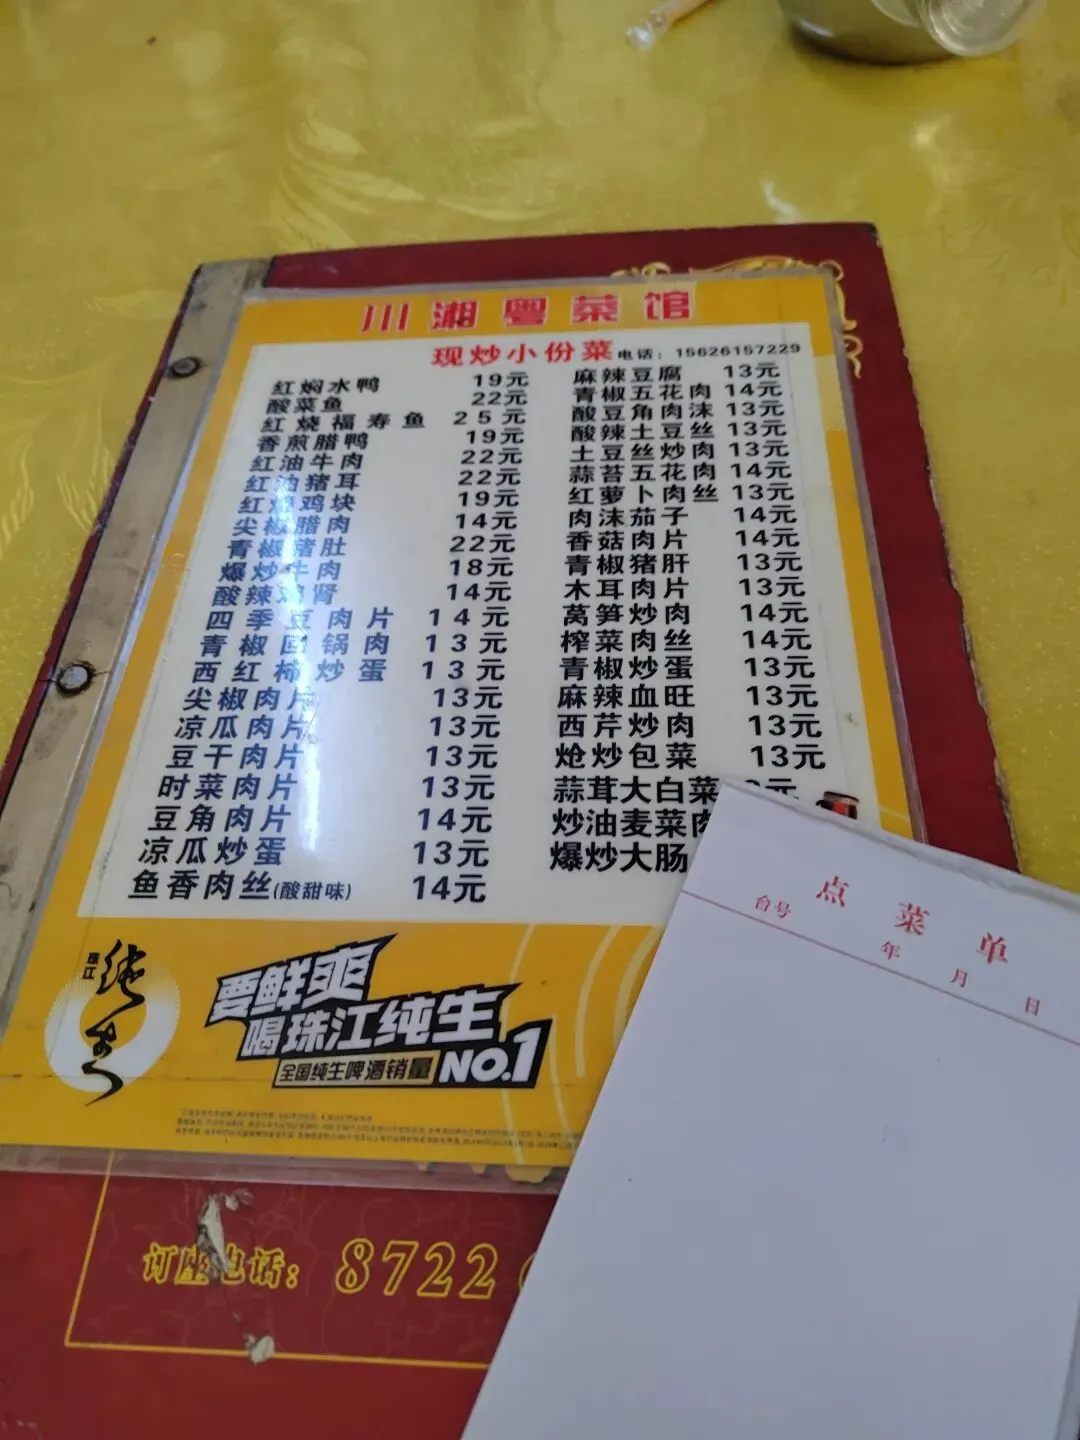 川湘粤菜馆
现炒小份菜 电话：15626157229
红焖水鸭 19元
酸菜鱼 22元
红烧福寿鱼 25元
香煎腊鸭 19元
红油牛肉 22元
红油猪耳 22元
红焖鸡块 19元
尖椒腊肉 14元
青椒猪肚 22元
爆炒牛肉 18元
酸辣鸡肾 14元
四季豆肉片 14元
青椒回锅肉 13元
西红柿炒蛋 13元
尖椒肉片 13元
凉瓜肉片 13元
豆干肉片 13元
时菜肉片 13元
豆角肉片 14元
凉瓜炒蛋 13元
鱼香肉丝(酸甜味) 14元
麻辣豆腐 13元
青椒五花肉 14元
酸豆角肉沫 13元
酸辣土豆丝 13元
土豆丝炒肉 13元
蒜苔五花肉 14元
红萝卜肉丝 13元
肉沫茄子 14元
香菇肉片 14元
青椒猪肝 13元
木耳肉片 13元
莴笋炒肉 14元
榨菜肉丝 14元
青椒炒蛋 13元
麻辣血旺 13元
西芹炒肉 13元
炝炒包菜 13元
蒜茸大白菜 元
炒油麦菜
爆炒大肠
珠江
纯生
要鲜爽
喝珠江纯生
全国纯生啤酒销量NO.1
订座电话：8722
点菜单
台号
年 月 日